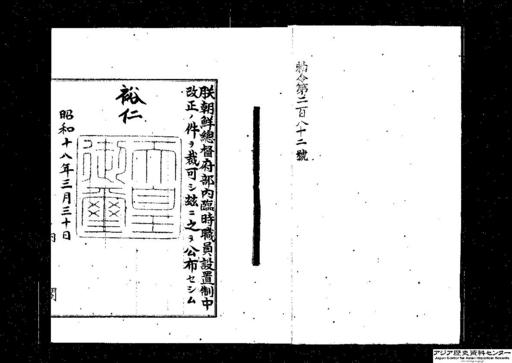 勅令第二百八十二號
朕朝鮮總督府部內臨時職員設置制中
改正ノ件ヲ裁可シ玆ニ之ヲ公布セシム
裕仁
天皇
御璽
昭和十八年三月三十日
アジア歴史資料センター
Japan Center for Asian Historical Records